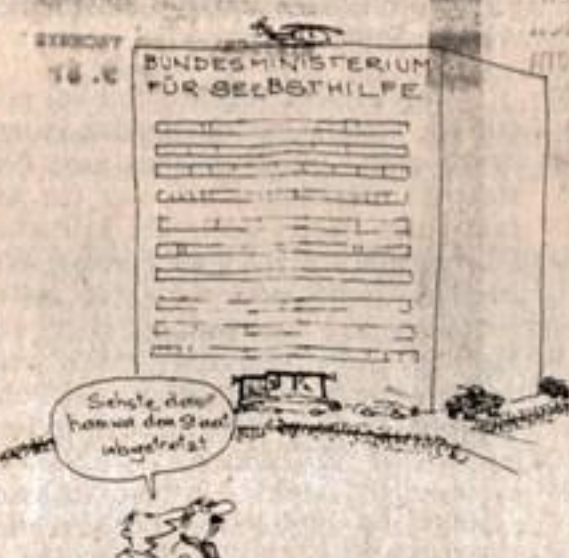 BUNDESMINISTERIUM
FÜR SELBSTHILFE
Siehste, das
hamwa dem Staat
abgetrotzt